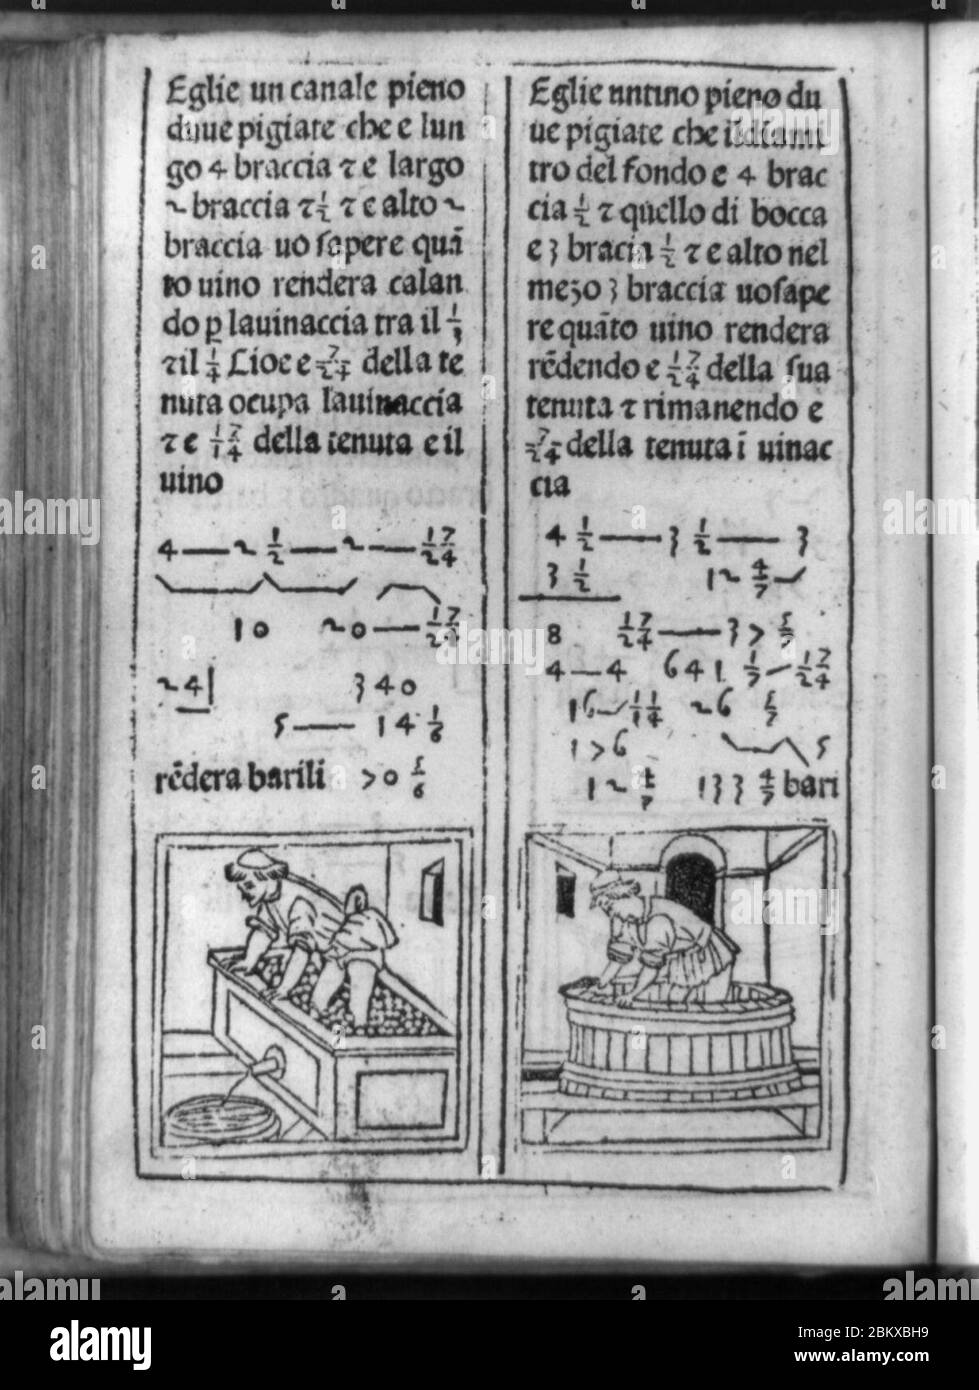 Eglie un canale pieno
duue pigiate che e lun
go 4 braccia ⁊ e largo
2 braccia ⁊ 1/2 ⁊ e alto 2
braccia uo sapere quā
to uino rendera calan
do p lauinaccia tra il 1/3
⁊ il 1/4 Lioe e 7/24 della te
nuta ocupa lauinaccia
⁊ e 17/14 della tenuta e il
uino
4 — 2 1/2 — 2 — 17/24
10 20 — 17/24
24 340
5 — 14 1/6
rēdera barili 70 5/6
Eglie un tino pieno du
ue pigiate che il diami
tro del fondo e 4 brac
cia 1/2 ⁊ quello di bocca
e 3 bracia 1/2 ⁊ e alto nel
mezo 3 braccia uo sape
re quāto uino rendera
rēdendo e 17/24 della sua
tenuta ⁊ rimanendo e
7/24 della tenuta ī uinac
cia
4 1/2 — 3 1/2 — 3
3 1/2 12 4/7
8 17/24 — 37 5/7
4 — 4 641 1/7 — 17/24
16 — 11/14 26 5/7
176 5
12 4/7 133 4/7 bari
alamy
Image ID: 2BKXBH9
www.alamy.com